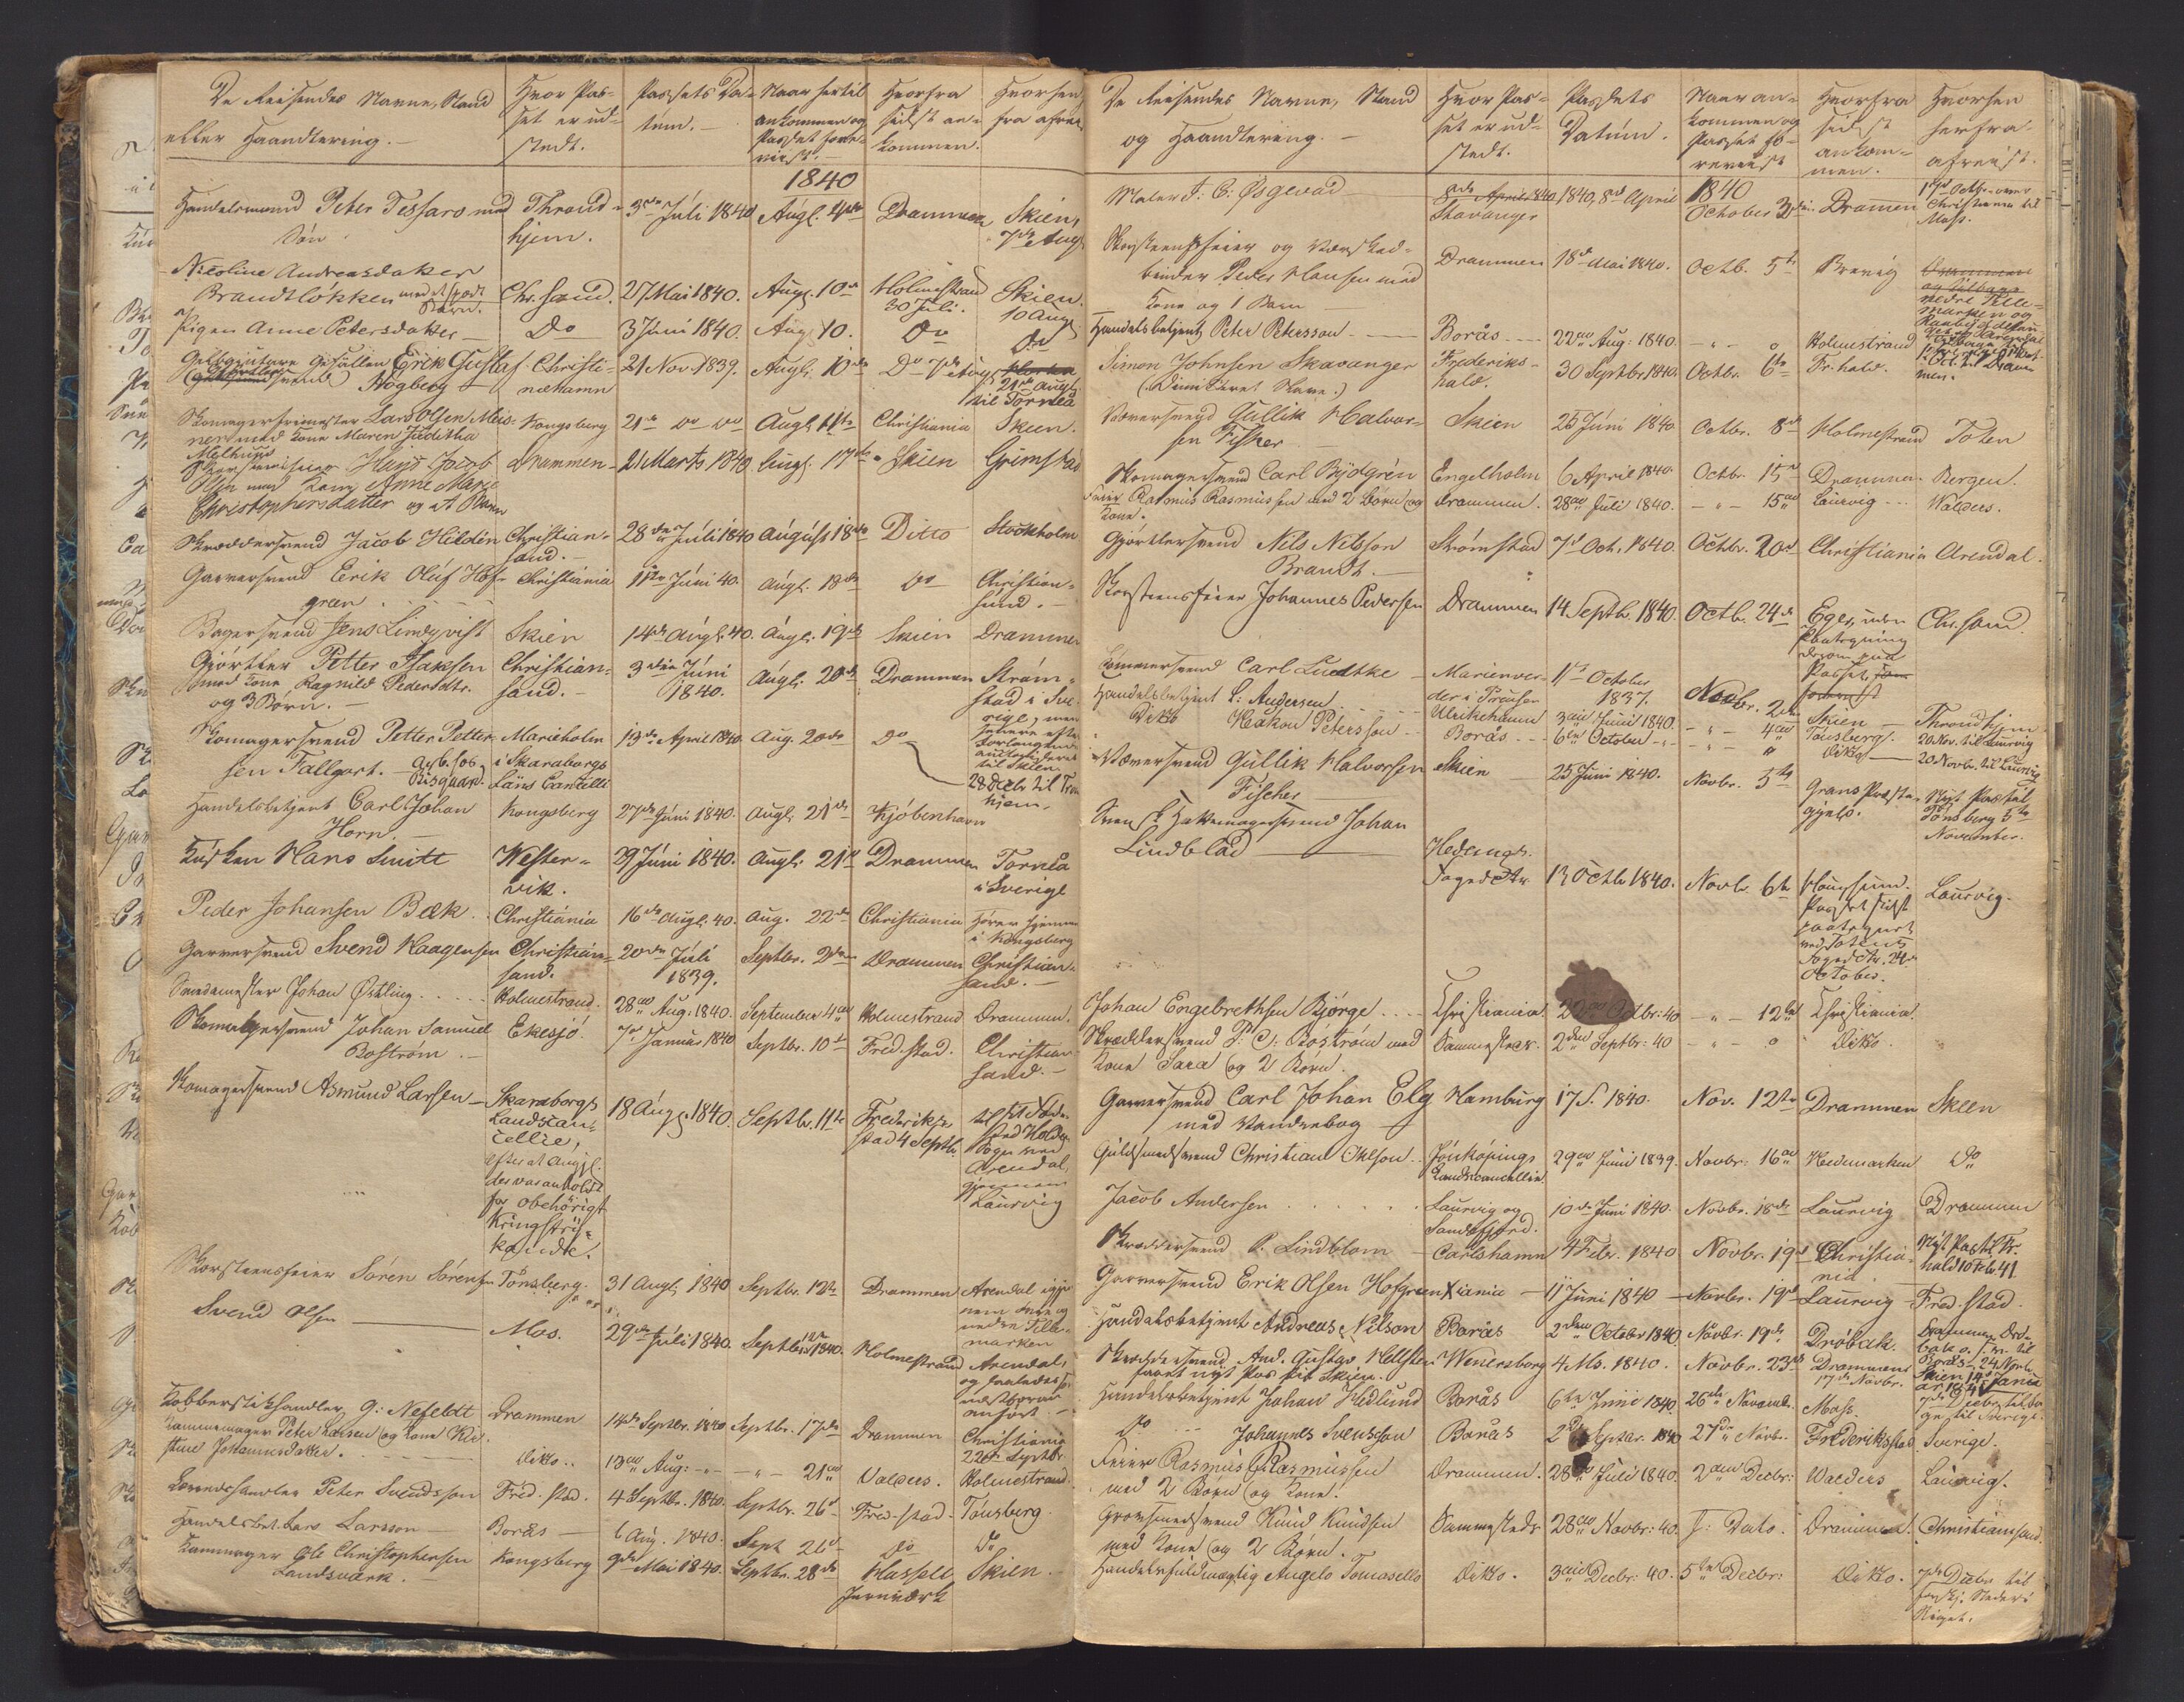 De Reisendes Navne, Stand
eller Haandtering.
Hvor Pas-
set er ud-
stedt.
Passets Da-
tum.
Naar hertil
ankommen og
Passet fore-
viist.
Hvorfra
sidst an-
kommen.
Hvorhen
fra afreist
1840
Handelsmand Peter Tessaro med
Søn
Throndhjem.
3die Juli 1840
Augt. 4de
Drammen
Skien,
7de Augt
Nicoline Andreasdatter
Brandtløkken med et spædt
Barn.
Chr.sand.
27 Mai 1840.
Augt. 10de
Holmestrand
30 Juli.
Skien.
10 Aug
Pigen Anne Petersdatter
Do
3 Juni 1840.
Aug 10.
Do
Do
Gesällen Erik Gustaf
Högberg
Christi-
næhamn
21 Nov. 1839.
Augt. 10de
Do 7de Augt
21de Augt.
til Torneå
Skomagermester Lars Olsen Meis-
ner med Kone Maren Juditha
Melhuus
Kongsberg
21de do do
Augt 11te
Christiania
Skien.
Hans Jacob
Olsen med Kone Anne Marie
Christophersdatter og et Barn
Drammen
21 Marts 1840
Augt. 17de
Skien
Grimstad
Skræddersvend Jacob Hildén
Christian-
sand.
28de Juli 1840
August 18de
Ditto
Stockholm
Garversvend Erik Oluf Hof-
green
Christiania
11te Juni 40.
Augt. 18de
Do
Christian-
sund.
Bagersvend Jens Lindqvist
Skien
14de Augt. 40.
Augt. 19de
Skien
Drammen
Gjørtler Petter Isaksen
med Kone Ragnild Pedersdtr.
og 3 Børn.
Christian-
sand.
3die Juni
1840.
Augt. 20de
Drammen
Strøm-
stad i Sve-
rige, men
senere efter
Forlangende
til Skien
Skomagersvend Petter Petter-
sen Fallqort.
Marieholm
i Skaraborgs
Läns Cantselli
13de April 1840.
Aug. 20de
Do
28 Decbr til Tron
hjem.
Handelsbetjent Carl Johan
Horn
Kongsberg
27de Juni 1840.
Augt. 21de
Kjøbenhavn
Kusken Hans Smitt
Wester-
vik.
29 Juni 1840.
Augt. 21de
Drammen
Torneå
i Sverige
Peder Johansen Bæk
Christiania
16de Augt. 40.
Aug. 22de
Christiania
Hører hjemme
i Kongsberg
Garversvend Svend Haagensen
Christian-
sand.
20de Juli
1839.
Septbr. 2den
Drammen
Christian-
sand.
Johan Østling
Holmestrand.
28de Aug. 1840.
September 4de
Holmestrand
Drammen.
Skomagersvend Johan Samuel
Boström
Ekesjö.
7de Januar 1840
Septbr. 10de
Fred.stad.
Christian-
sand.
Skomagersvend Asmund Larsen
Skaraborgs
Landscan-
cellie,
for obehörigt
Kringstry-
kande.
18 Augt. 1840.
Septbr. 11te
Frederik-
stad 4 Septbr.
Arendal,
gjennem
Laurvig
Skorsteensfeier Søren Sørensen
Tønsberg.
31 Augt. 1840
Septbr. 12te
Drammen
Arendal igjen-
nem øvre og
nedre Tille-
marken
Svend Olsen
Mos.
29de Juli 1840.
Septbr 12te 1840.
Holmestrand
Arendal,
anført
Kobberstikhandler G: Nefeldt
Drammen
14de Septbr. 1840
Septbr. 17de
Drammen
Christiania
22de Septbr.
Kammager Peter Larsen og Kone Kir-
stine Johannesdatter.
Ditto.
13de Aug:
21de
Valders.
Holmestrand
Peter Svendsson
Fred.stad.
4 Septbr. 1840.
Septbr. 26de
Fred.stad
Tønsberg.
Handelsbet. Lars Larsson
Borås
6 Aug. 1840.
Sept 26de
Do
Do
Kammager Ole Christophersen
Landsværk.
Kongsberg
9de Mai 1840.
Septbr. 28de
Hassell
Jernværk
Skien.
De Reisendes Navne, Stand
og Haandtering.
Hvor Pas-
set er ud-
stedt.
Passets
Datum.
Naar an-
kommen og
Passet fo-
reviist
Hvorfra
sidst
ankom-
men.
Hvorhen
herfra
afreist.
1840
Maler J. C. Øsgevad
8de April 1840
Stavanger
1840, 8de April
October 3die
Drammen
17de Octbr. over
Christiania til
Moss.
Skorsteensfeier og
binder Peder Hansen med
Kone og 1 Barn
Drammen
18de Mai 1840.
Octb. 5te
Brevig
Drammen
og tilbage
nedre Tille-
marken og
Handelsbetjent Peter Petersson
Borås
22de Aug: 1840.
Holmestrand
Simon Johnsen Skavanger
Frederiks-
hald.
30 Septbr 1840.
Octbr. 6te
Fr.hald.
Væversvend Gullik Halvor-
sen Fisher
Skien
25 Juni 1840.
Octbr. 8de
Holmestrand
Toten
Skomagersvend Carl Bydgren
Engelholm
6 April 1840.
Octbr. 15de
Drammen.
Bergen.
Feier Rasmus Rasmussen med 2 Børn og
Kone.
Drammen.
28de Juli 1840.
15de
Laurvig
Walders.
Gjørtlersvend Nils Nilsson
Brandt.
Strømstad
7de Oct. 1840.
Octbr. 20de
Christiania
Arendal.
Skorsteensfeier Johannes Pedersen
Drammen
14 Septb. 1840.
Octb. 24de
Eger, uden
Paategning
derom paa
Passet
Chr.sand.
Tømmersvend Carl Ludtke
Marienver-
der i Preusen
11te October
1837.
Novbr. 2den
Skien
Throndhjem
Handelsbetjent L: Andersen
Ulrikehamn
3die Juni 1840.
4de
Tønsberg.
20 Nov. til Laurvig
Ditto Håkon Petersson
Borås
6te October
Ditto
20 Novbr. til Laurvig
Væversvend Gullik Halvorsen
Fischer
Skien
25 Juni 1840.
Novbr. 5te
Grans Præste-
gjeld.
Nyt Pas til
Tønsberg 5te
November.
Svensk Hattemagersvend Johan
Lindblad
Hedemks.
Fogderie
13 Octbr 1840.
Novbr. 6te
Haugsund.
Passet sidst
paategnet
ved Totens
Fogderie 24de
October.
Laurvig.
Johan Engebrethsen Bjørge
Christiania.
Octbr: 40
12te
Christiania.
Skræddersvend P: O: Böström med
Kone Sara og 2 Børn.
Sammesteds.
2den Septbr: 40
Ditto.
Garversvend Carl Johan Elg
med Vandrebog
Hamburg
17 S. 1840.
Nov. 12te
Drammen
Skien
Guldsmedsvend Christian Ohlson
Jönköpings
Landscancellie
29de Juni 1839.
Novbr: 16de
Hedmarken
Do
Jacob Andersen
Laurvig og
Sandefjord.
10de Juni 1840.
Novbr. 18de
Laurvig
Drammen
Skræddersvend P. Lindblom
Carlshamn
4 Febr. 1840
Novbr. 19de
Christia-
nia
Nyt Pas til Fr.
hald 10 Feb. 41
Garversvend Erik Olsen Hofgreen
Xiania
11 Juni 1840
Novbr. 19de
Laurvig
Fred.stad.
Handelsbetjent Andreas Nilson
Borås
2den Octobr 1840.
Novbr. 19de
Drøbak.
Skræddersvend And. Gustav Hellsten
faaet nyt Pas til Skien.
Wenersborg
4 Ms. 1840.
Novbr. 23de
Drammen
17de Novbr.
Handelsbetjent Johan Hedlund
Borås
6te Juni 1840.
26de Novemb.
Moss.
7de Decbr tilba-
ge til Sverige.
Do Johannes Svensson
Borås
Septbr. 1840
27de Novbr.
Frederikstad
Sverige.
Feier Rasmus Rasmussen
med 2 Børn og Kone.
Drammen.
28de Juli 1840.
2den Decbr:
Walders
Laurvig.
Grovsmedsvend Knud Knudsen
med Kone og 2 Børn.
Sammesteds
28de Novbr: 40.
Dato.
Drammen.
Christiansand.
Handelsfuldmægtig Angelo Tomasello
Ditto.
3die Decbr: 40.
5te Decbr:
Ditto.
7de Decbr til
forskj. Steder i
Riget.